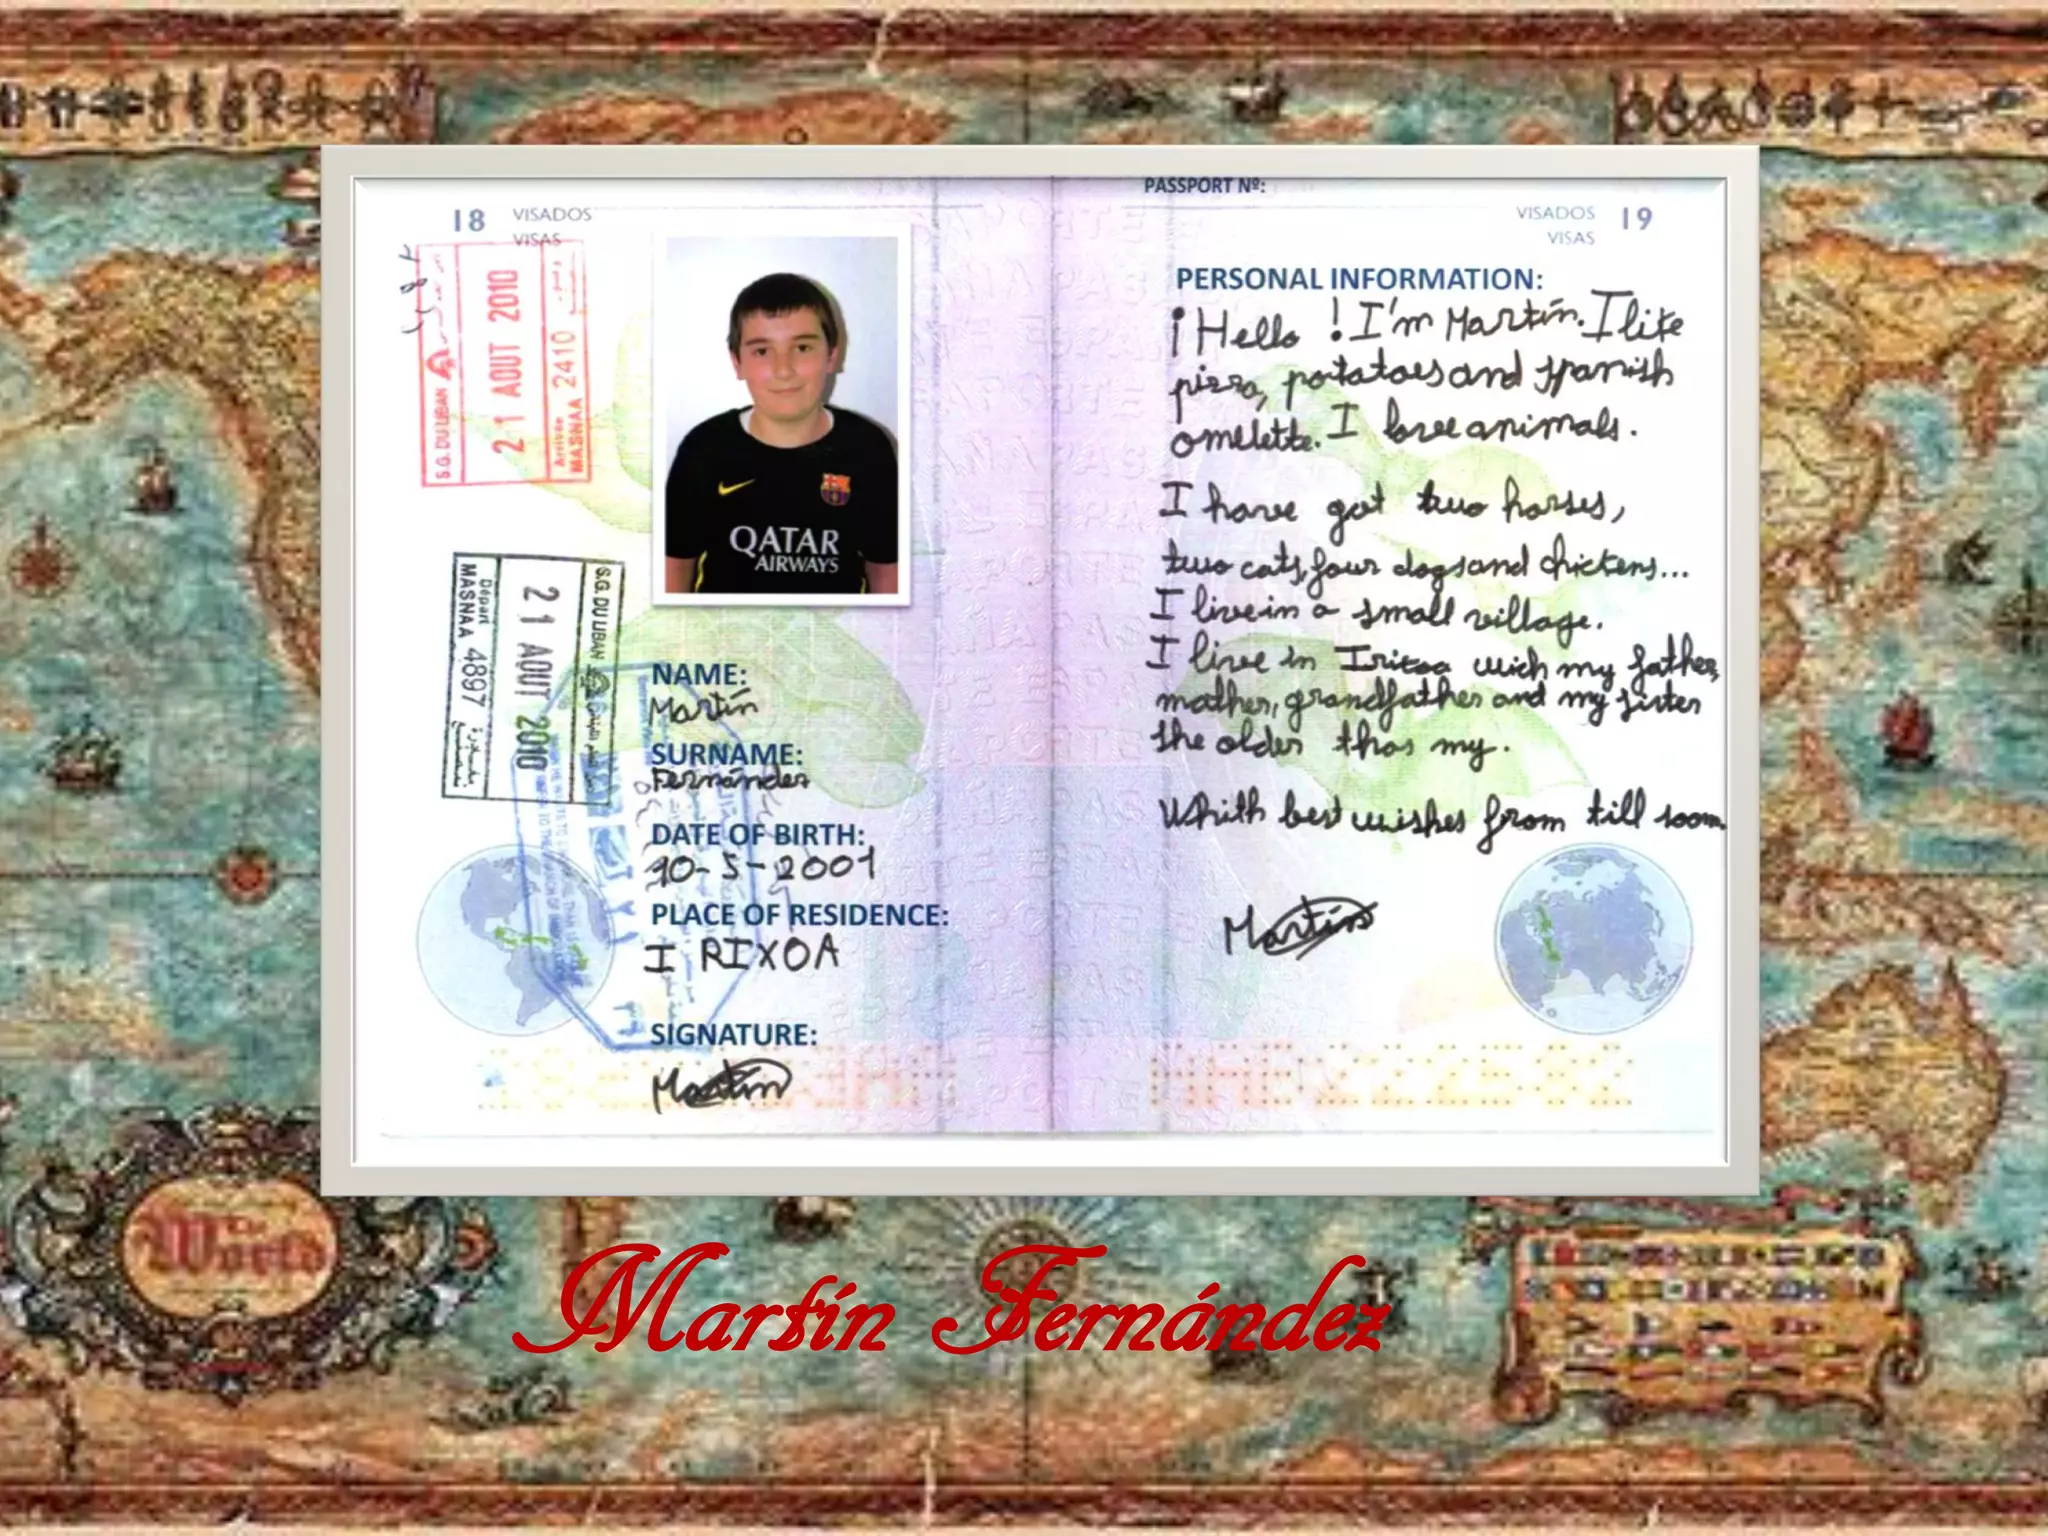 PASSPORT Nº:
18 VISADOS
VISAS
VISADOS 19
VISAS
S.G. DU LIBAN
21 AOUT 2010
Arrivée
MASNAA 2410
QATAR
AIRWAYS
S.G. DU LIBAN
21 AOUT 2010
Départ
MASNAA 4897
NAME:
Martín
SURNAME:
Fernández
DATE OF BIRTH:
10-5-2001
PLACE OF RESIDENCE:
IRIXOA
SIGNATURE:
Martín
PERSONAL INFORMATION:
¡Hello! I'm Martín. I like
pizza, potatoes and spanish
omelette. I love animals.
I have got two horses,
two cats, four dogs and chickens...
I live in a small village.
I live in Irixoa wich my father,
mother, grandfather and my sister
she older thas my.
Whith best wishes from till soom.
Martín
The
World
Martín Fernández